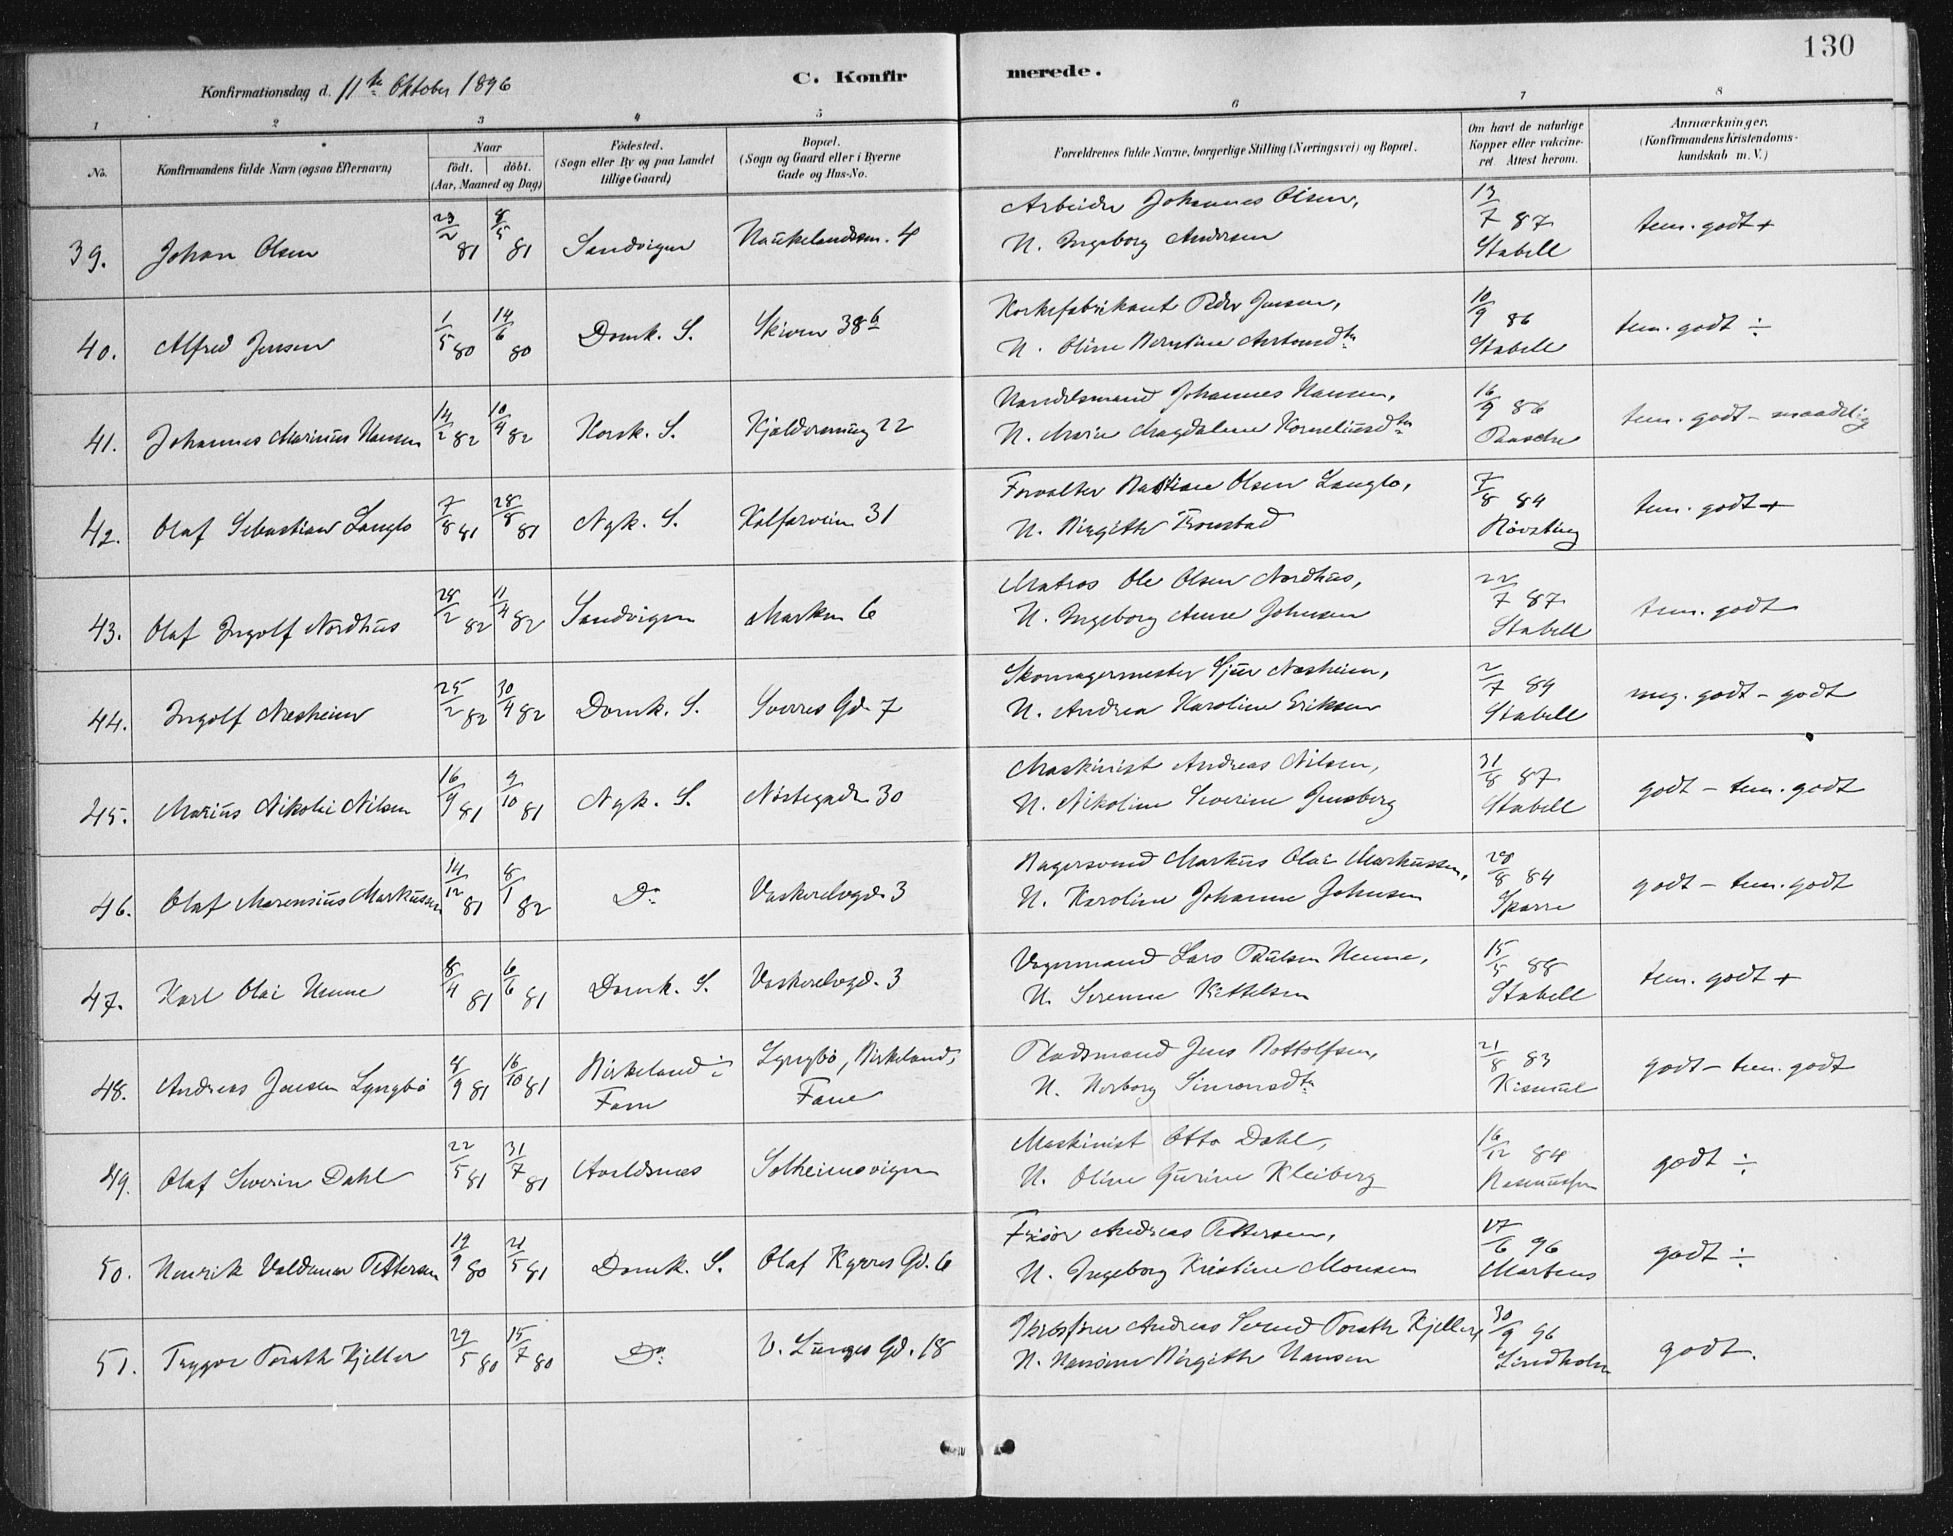 130
Konfirmationsdag d. 11te Oktober 1896
C. Konfirmerede.
1 2 3 4 5 6 7 8
No.
Konfirmandens fulde Navn (ogsaa Efternavn)
Naar
födt. döbt.
(Aar, Maaned og Dag)
Födested.
(Sogn eller By og paa Landet
tillige Gaard)
Bopæl.
(Sogn og Gaard eller i Byerne
Gade og Hus-No.
Forældrenes fulde Navne, borgerlige Stilling (Næringsvei) og Bopæl.
Om havt de naturlige
Kopper eller vakcine-
ret. Attest herom.
Anmærkninger.
(Konfirmandens Kristendoms-
kundskab m. V.)
39. Johan Olsen 23/2 81 8/5 81 Sandvigen Haukelandsv. 4
Arbeider Johannes Olsen,
H. Ingeborg Andersen
13/7 87
Stabell
tem. godt +
40. Alfred Jensen 1/5 80 14/6 80 Domk. S. Skiven 38b
Korkefabrikant Peder Jensen,
H. Oline Berntine
10/9 86
Stabell
tem. godt ÷
41. Johannes Marinus Hansen 14/2 82 10/4 82 Korsk. S. 22
Handelsmand Johannes Hansen,
H. Marie Magdalene Korneliusdtr
16/9 86
Paasche
tem. godt - maadelig
42. Olaf Sebastian Langlo 7/8 81 28/8 81 Nyk. S. Kalfarveien 31
Forvalter Bastian Olsen Langlo,
H. Birgithe Tronstad
7/8 84
tem. godt +
43. Olaf Ingolf Nordhus 28/2 82 11/4 82 Sandvigen Marken 6
Matros Ole Olsen Nordhus,
H. Ingeborg Anne Johnsen
22/7 87
Stabell
tem. godt
44. Ingolf Næsheim 25/2 82 30/4 82 Domk. S. Sverres Gd. 7
Skomagermester Sjur Næsheim,
H. Andrea Karoline Eriksen
2/7 89
Stabell
meg. godt - godt
45. Marius Nikolai Nilsen 16/9 81 9/10 81 Nyk. S. Nöstegaden 30
Maskinist Andreas Nilsen,
H. Nikoline Severine Jensberg
31/8 87
Stabell
godt - tem. godt
46. Olaf Marensius Markussen 14/12 81 8/1 82 Do Vaskerelvgd. 3
Bagersvend Markus Olai Markussen,
H. Karoline Johanne Johnsen
28/8 84
Sparre
godt - tem. godt
47. Karl Olai Unne 8/4 81 6/6 81 Domk. S. Vaskerelvgd. 3
Vognmand Lars Paulsen Unne,
H. Serenne Kittelsen
15/5 88
Stabell
tem. godt +
48. Andreas Jensen Lyngbö 8/9 81 16/10 81 Birkeland i
Fane
Lyngbö, Birkeland,
Fane
Pladsmand Jens Bottolfsen,
H. Herborg Simonsdtr
21/8 83
Kismul
godt - tem. godt
49. Olaf Severin Dahl 22/5 81 31/7 81 Avaldsnæs Solheimsvigen
Maskinist Otto Dahl,
H. Oline Gurine Kleiberg
16/12 84
Rasmussen
godt ÷
50. Henrik Valdemar Pettersen 19/9 80 21/5 81 Domk. S. Olaf Kyrres Gd. 6
Frisör Andreas Pettersen,
H. Ingeborg Kristine Monsen
17/6 96
Martens
godt ÷
51. Trygve Torath Kjeller 29/5 80 15/7 80 Do V. Lunges Gd. 18
Andreas Svend Torath Kjeller,
H. Hansine Birgithe Hansen
30/9 96
Lindholm
godt.